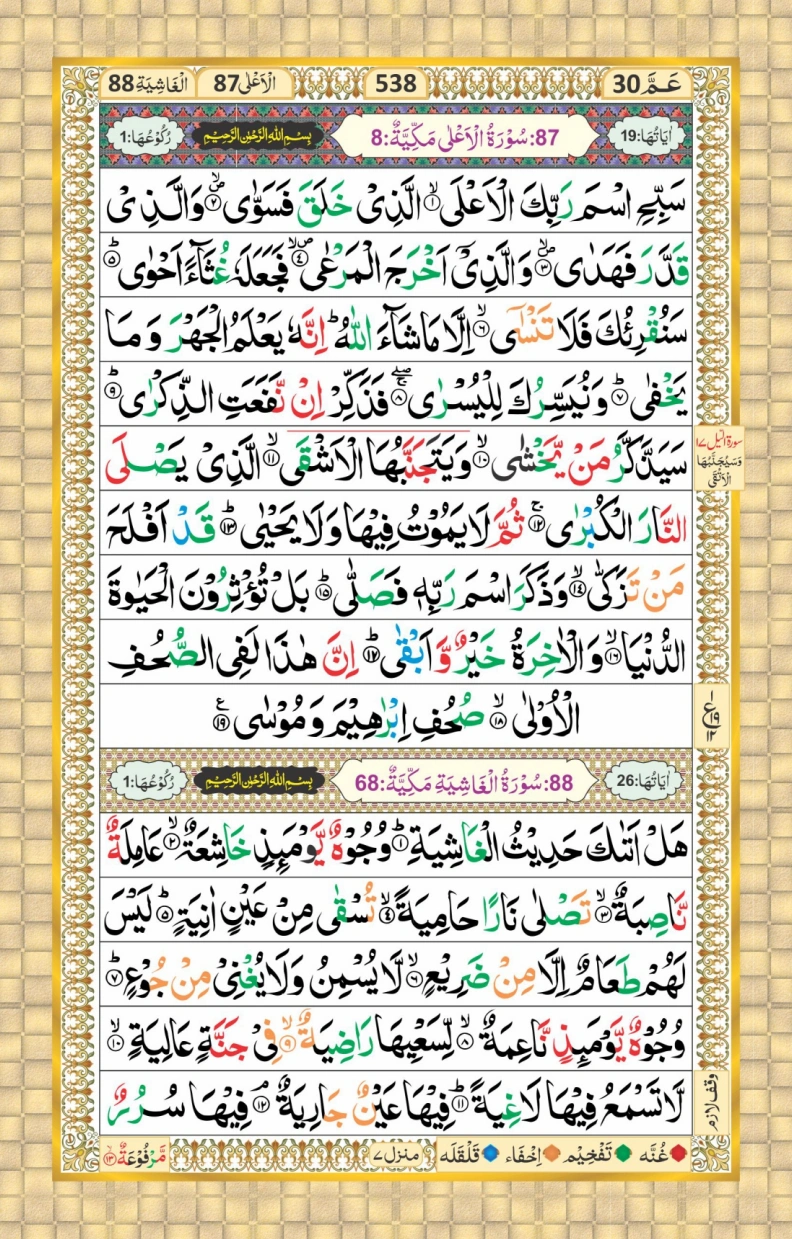 عَمَّ 30 538 اَلْاَعْلٰى 87 اَلْغَاشِيَة 88
اٰيَاتُهَا:19 87: سُوْرَةُ الْاَعْلٰى مَكِّيَّةٌ:8 بِسْمِ اللّٰهِ الرَّحْمٰنِ الرَّحِيْمِ رُكُوْعُهَا:1
سَبِّحِ اسْمَ رَبِّكَ الْاَعْلَى ۙ‏﴿۱﴾ الَّذِىْ خَلَقَ فَسَوّٰى ۙ‏﴿۲﴾ وَالَّذِىْ
قَدَّرَ فَهَدٰى ۙ‏﴿۳﴾ وَالَّذِىْٓ اَخْرَجَ الْمَرْعٰى ۙ‏﴿۴﴾ فَجَعَلَهٗ غُثَآءً اَحْوٰى ؕ‏﴿۵﴾
سَنُقْرِئُكَ فَلَا تَنْسٰٓى ۙ‏﴿۶﴾ اِلَّا مَا شَآءَ اللّٰهُ ؕ اِنَّهٗ يَعْلَمُ الْجَهْرَ وَمَا
يَخْفٰى ؕ‏﴿۷﴾ وَنُيَسِّرُكَ لِلْيُسْرٰى ۖۚ‏﴿۸﴾ فَذَكِّرْ اِنْ نَّفَعَتِ الذِّكْرٰى ؕ‏﴿۹﴾
سَيَذَّكَّرُ مَنْ يَّخْشٰى ۙ‏﴿۱۰﴾ وَيَتَجَنَّبُهَا الْاَشْقَى ۙ‏﴿۱۱﴾ الَّذِىْ يَصْلَى
سورة اليل ۱۷
وَسَيُجَنَّبُهَا
الْاَتْقَى
النَّارَ الْكُبْرٰى ۚ‏﴿۱۲﴾ ثُمَّ لَا يَمُوْتُ فِيْهَا وَلَا يَحْيٰى ؕ‏﴿۱۳﴾ قَدْ اَفْلَحَ
مَنْ تَزَكّٰى ۙ‏﴿۱۴﴾ وَذَكَرَ اسْمَ رَبِّهٖ فَصَلّٰى ؕ‏﴿۱۵﴾ بَلْ تُؤْثِرُوْنَ الْحَيٰوةَ
الدُّنْيَا ۙ‏﴿۱۶﴾ وَالْاٰخِرَةُ خَيْرٌ وَّاَبْقٰى ؕ‏﴿۱۷﴾ اِنَّ هٰذَا لَفِى الصُّحُفِ
الْاُوْلٰى ۙ‏﴿۱۸﴾ صُحُفِ اِبْرٰهِيْمَ وَمُوْسٰى ‏﴿۱۹﴾ ع
۱ ع ۱۹ ۱۲
اٰيَاتُهَا:26 88: سُوْرَةُ الْغَاشِيَةِ مَكِّيَّةٌ:68 بِسْمِ اللّٰهِ الرَّحْمٰنِ الرَّحِيْمِ رُكُوْعُهَا:1
هَلْ اَتٰىكَ حَدِيْثُ الْغَاشِيَةِ ؕ‏﴿۱﴾ وُجُوْهٌ يَّوْمَئِذٍ خَاشِعَةٌ ۙ‏﴿۲﴾ عَامِلَةٌ
نَّاصِبَةٌ ۙ‏﴿۳﴾ تَصْلٰى نَارًا حَامِيَةً ۙ‏﴿۴﴾ تُسْقٰى مِنْ عَيْنٍ اٰنِيَةٍ ؕ‏﴿۵﴾ لَيْسَ
لَهُمْ طَعَامٌ اِلَّا مِنْ ضَرِيْعٍ ۙ‏﴿۶﴾ لَّا يُسْمِنُ وَلَا يُغْنِىْ مِنْ جُوْعٍ ؕ‏﴿۷﴾
وُجُوْهٌ يَّوْمَئِذٍ نَّاعِمَةٌ ۙ‏﴿۸﴾ لِّسَعْيِهَا رَاضِيَةٌ ۙ‏﴿۹﴾ فِىْ جَنَّةٍ عَالِيَةٍ ۙ‏﴿۱۰﴾
لَّا تَسْمَعُ فِيْهَا لَاغِيَةً ؕ‏﴿۱۱﴾ فِيْهَا عَيْنٌ جَارِيَةٌ ۘ‏﴿۱۲﴾ فِيْهَا سُرُرٌ
وقف لازم
غُنَّه تَفْخِيْم اِخْفَاء قَلْقَلَه منزل ۷ مَّرْفُوْعَةٌ ۙ‏﴿۱۳﴾